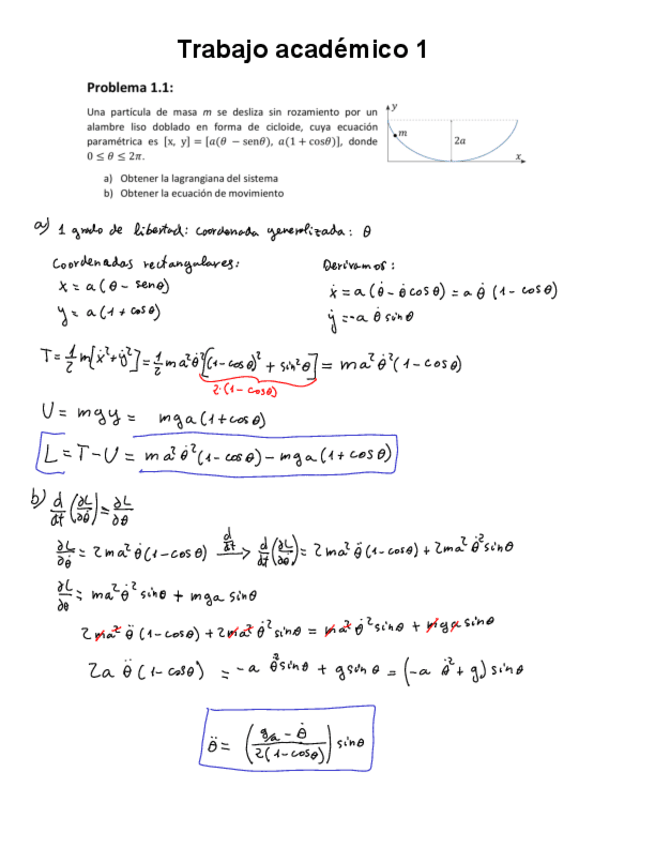 Trabajo académico 1
Problema 1.1:
Una partícula de masa m se desliza sin rozamiento por un
alambre liso doblado en forma de cicloide, cuya ecuación
paramétrica es [x, y] = [a(θ − senθ), a(1 + cosθ)], donde
0 ≤ θ ≤ 2π.
y
m
2a
x
a) Obtener la lagrangiana del sistema
b) Obtener la ecuación de movimiento
a) 1 grado de libertad: coordenada generalizada: θ
Coordenadas rectangulares:
x = a(θ - senθ)
y = a(1 + cosθ)
Derivamos:
ẋ = a(θ̇ - θ̇ cosθ) = a θ̇ (1 - cosθ)
ẏ = -a θ̇ sinθ
T = 1/2 m[ẋ² + ẏ²] = 1/2 m a² θ̇² [(1 - cosθ)² + sin²θ] = m a² θ̇² (1 - cosθ)
2·(1 - cosθ)
U = mgy = mga(1 + cosθ)
L = T - U = m a² θ̇² (1 - cosθ) - mga(1 + cosθ)
b) d/dt (∂L/∂θ̇) = ∂L/∂θ
∂L/∂θ̇ = 2ma² θ̇ (1 - cosθ) d/dt → d/dt (∂L/∂θ̇) = 2ma² θ̈ (1 - cosθ) + 2ma² θ̇² sinθ
∂L/∂θ = ma² θ̇² sinθ + mga sinθ
2ma² θ̈ (1 - cosθ) + 2ma² θ̇² sinθ = ma² θ̇² sinθ + mga sinθ
2a θ̈ (1 - cosθ) = -a θ̇² sinθ + g sinθ = (-a θ̇² + g) sinθ
θ̈ = ( (g/a - θ̇) / (2(1 - cosθ)) ) sinθ